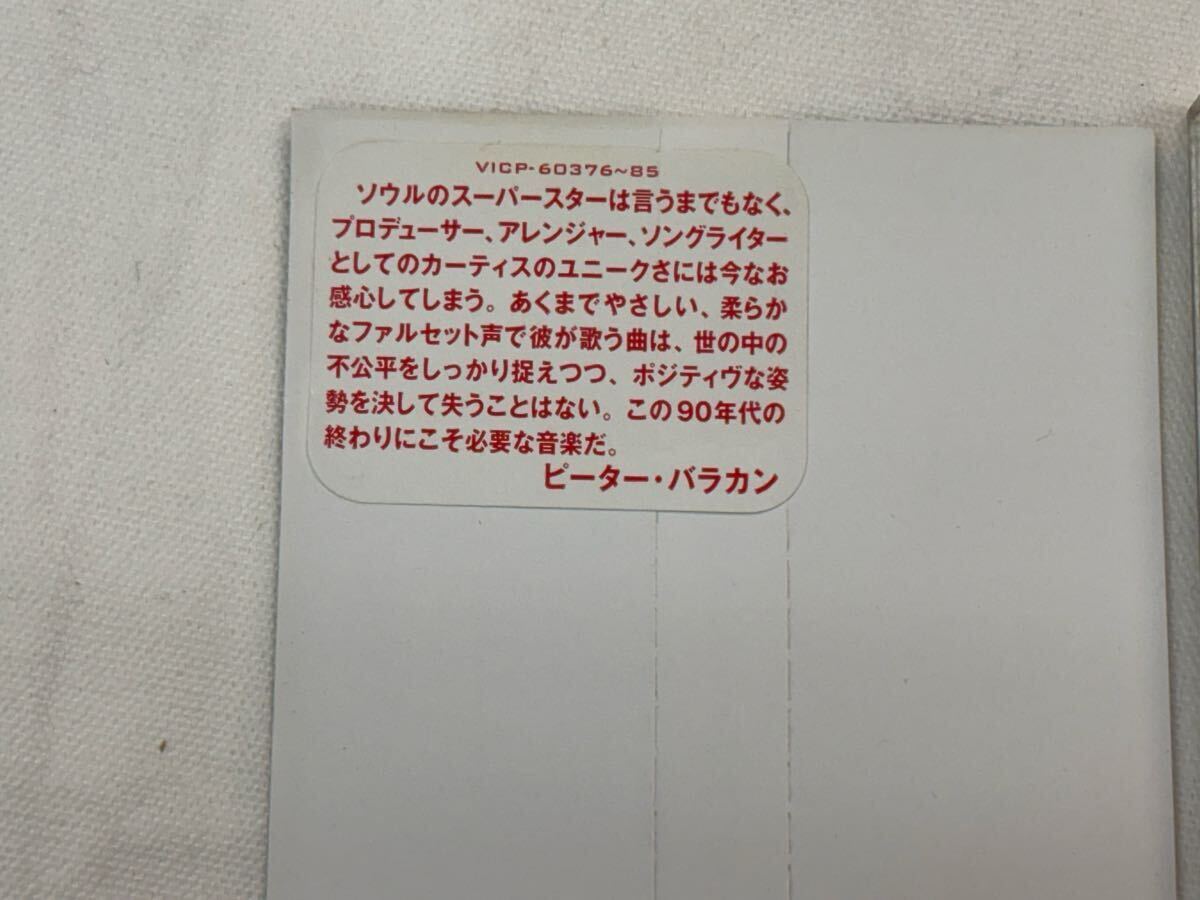 VICP-60376~85
ソウルのスーパースターは言うまでもなく、
プロデューサー、アレンジャー、ソングライター
としてのカーティスのユニークさには今なお
感心してしまう。あくまでやさしい、柔らか
なファルセット声で彼が歌う曲は、世の中の
不公平をしっかり捉えつつ、ポジティヴな姿
勢を決して失うことはない。この90年代の
終わりにこそ必要な音楽だ。
ピーター・バラカン